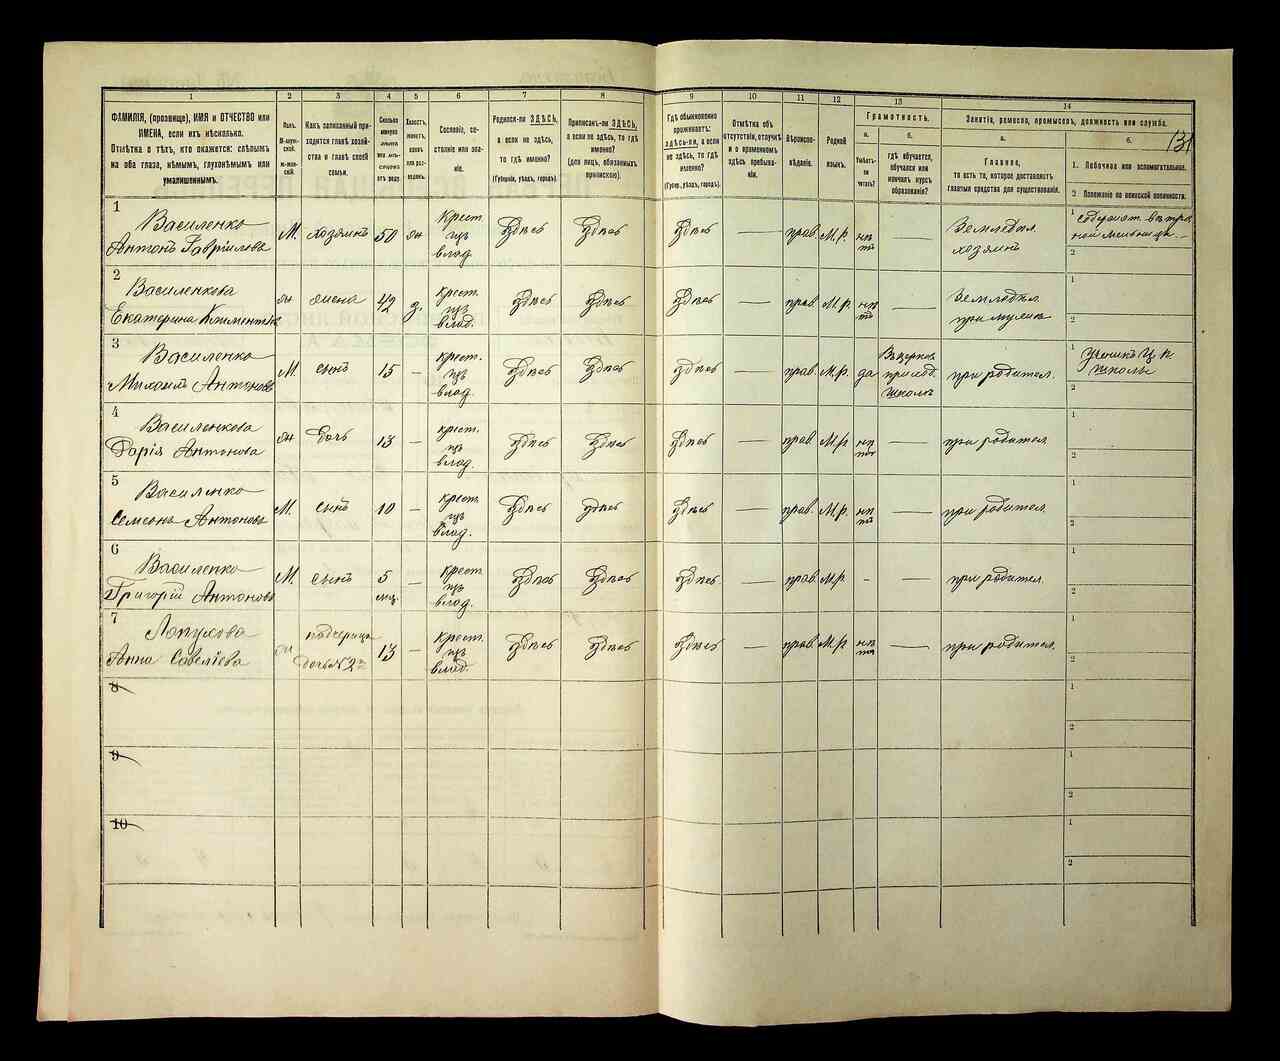 1 2 3 4 5 6 7 8 9 10 11 12 13 14
131
ФАМИЛІЯ, (прозвище), ИМЯ и ОТЧЕСТВО или
ИМЕНА, если ихъ нѣсколько.
Отмѣтка о тѣхъ, кто окажется: слѣпымъ
на оба глаза, нѣмымъ, глухонѣмымъ или
умалишеннымъ.
Полъ.
М-мужской.
Ж-женскій.
Какъ записанный при-
ходится главѣ хозяй-
ства и главѣ своей
семьи.
Сколько
минуло
лѣтъ
или мѣ-
сяцевъ
отъ роду.
Холостъ,
женатъ,
вдовъ
или раз-
веденъ.
Сословіе, со-
стояніе или зва-
ніе.
Родился-ли ЗДѢСЬ,
а если не здѣсь,
то гдѣ именно?
(Губернія, уѣздъ, городъ).
Приписанъ-ли ЗДѢСЬ,
а если не здѣсь, то гдѣ
именно?
(для лицъ, обязанныхъ
припискою).
Гдѣ обыкновенно
проживаетъ:
здѣсь-ли, а если
не здѣсь, то гдѣ
именно?
(Губерн., уѣздъ, городъ).
Отмѣтка объ
отсутствіи, отлучкѣ
и о временномъ
здѣсь пребыва-
ніи.
Вѣроиспо-
вѣданіе.
Родной
языкъ.
Грамотность.
а.
Умѣетъ-
ли
читать?
б.
гдѣ обучается,
обучался или
кончилъ курсъ
образованія?
Занятіе, ремесло, промыселъ, должность или служба.
а.
Главное,
то есть то, которое доставляетъ
главныя средства для существованія.
б.
1. Побочное или вспомогательное.
2 Положеніе по воинской повинности.
1
Василенко
Антонъ Гавріилова М. хозяинъ 50 жн Крест. изъ влад. Здѣсь Здѣсь Здѣсь — прав. М.р. нѣтъ —
Земледѣл.
хозяинъ
1
2
2
Василенкова
Екатерина Климентьев жн жена 42 з. крест. изъ влад. Здѣсь Здѣсь Здѣсь — прав. М.р. нѣтъ —
Земледѣл.
при мужѣ
1
2
3
Василенко
Михаилъ Антоновъ М. сынъ 15 — крест. изъ влад. Здѣсь Здѣсь здѣсь — прав. М.р. да
Въ церков.
приход.
школѣ
при родител.
1 Ученикъ Ц. п.
школы
2
4
Василенкова
Дарія Антонова жн дочь 13 — крест. изъ влад. Здѣсь Здѣсь Здѣсь — прав. М.р. нѣтъ — при родител.
1
2
5
Василенко
Семенъ Антоновъ М. сынъ 10 — крест. изъ влад. Здѣсь здѣсь Здѣсь — прав. М.р. нѣтъ — при родител.
1
2
6
Василенко
Григорій Антоновъ М. сынъ 5 мц. — Крест. изъ влад. Здѣсь Здѣсь Здѣсь — прав. М.р. - — при родител.
1
2
7
Лопухова
Анна Савеліева жн
подчерица
дочь № 2й
13 — Крест. изъ влад. Здѣсь Здѣсь Здѣсь — прав. М.р. нѣтъ — при родител.
1
2
8
1
2
9
1
2
10
1
2